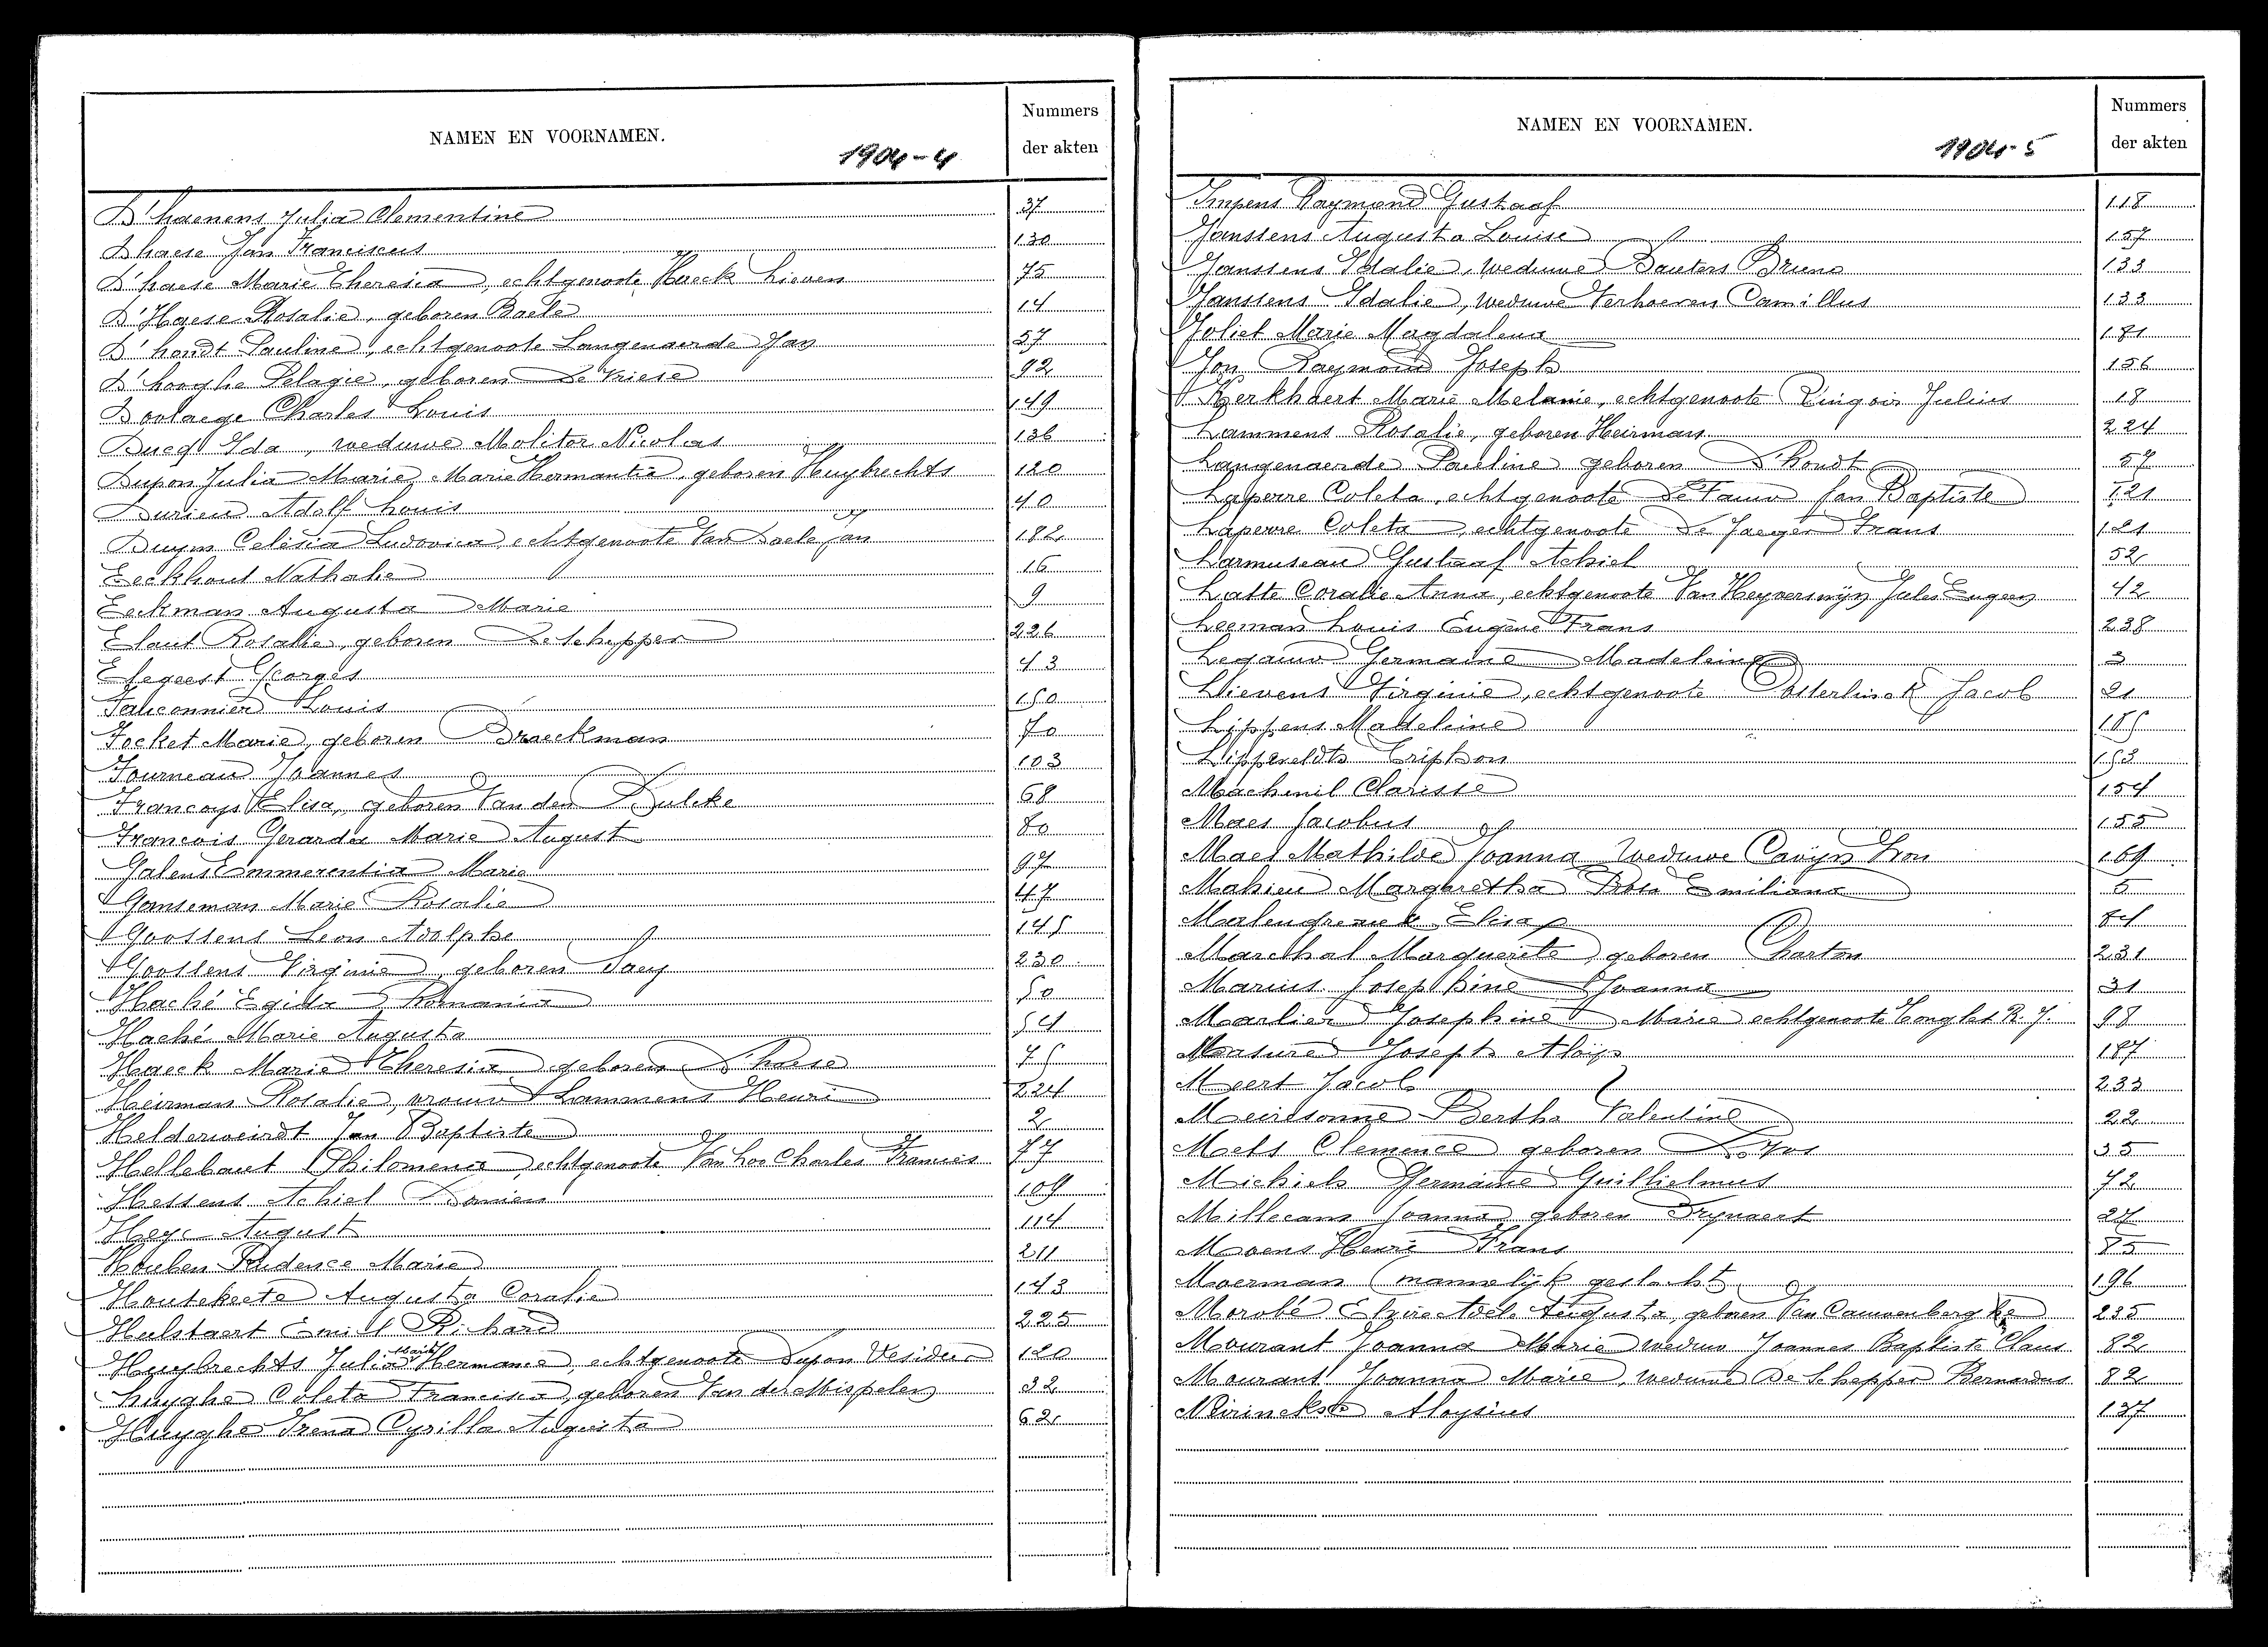 NAMEN EN VOORNAMEN.
1904-4
Nummers
der akten
D'haenens Julia Clementine 37
Dhaese Jan Franciscus 130
D'haese Marie Theresia, echtgenoote Haeck Lieven 75
D'Haese Rosalie, geboren Baele 14
D'hondt Pauline, echtgenoote Langenaerde Jan 57
D'hooghe Pelagie, geboren De Vriese 92
Doolaege Charles Louis 149
Ducq Ida, weduwe Molitor Nicolas 136
Dupon Julia Marie Marie Hermantia, geboren Huybrechts 120
Durieu Adolf Louis 40
Duym Celesia Ludovica, echtgenoote Van Daele Jan 182
Eeckhout Nathalie 16
Eeckman Augusta Marie 9
Elaut Rosalie, geboren De Schepper 226
Elegeest Georges 43
Falconnier Louis 150
Focket Marie, geboren Braeckman 70
Fourneau Joannes 103
Francoys Elisa, geboren Van den Bulcke 68
Francois Gerarda Marie August 80
Galens Emmerentia Marie 97
Ganseman Marie Rosalie 47
Goossens Leon Adolphe 145
Goossens Virginie, geboren Saey 230
Haché Egilda Romania 50
Haché Marie Augusta 54
Haeck Marie Theresia geboren D'haese 75
Heirman Rosalie, vrouw Lammens Henri 224
Helderweirdt Jan Baptiste 2
Hellebaut Philomena, echtgenoote Van hoo Charles Francies 77
Hessens Achiel Damien 109
Heye August 114
Houben Prudence Marie 211
Houtekeete Augusta Coralie 143
Hulstaert Emiel Richard 225
Huybrechts Julia Marie Hermance, echtgenoote Dupon Desideer 120
Huyghe Coleta Francisca, geboren Van der Mispelen 32
Huyghe Irena Cyrilla Augusta 62
NAMEN EN VOORNAMEN.
1904-5
Nummers
der akten
Impens Raymond Gustaaf 118
Janssens Augusta Louise 157
Janssens Idalie, weduwe Bauters Bruno 133
Janssens Idalie, weduwe Verhoeven Camillus 133
Joliet Marie Magdalena 181
Jon Raymond Joseph 156
Kerkhaert Marie Melanie, echtgenoote Ringoir Julius 18
Lammens Rosalie, geboren Heirman 224
Langenaerde Pauline geboren D'hondt 57
Laperre Coleta, echtgenoote De Fauw Jan Baptiste 121
Laperre Coleta, echtgenoote De Jaeger Frans 121
Larmuseau Gustaaf Achiel 52
Latte Coralie Anna, echtgenoote Van Heyverswyn Jules Eugeen 42
Leeman Louis Eugène Frans 238
Legauw Germaine Madeleine 3
Lievens Virginie, echtgenoote Oosterlinck Jacob 21
Lippens Madeleine 185
Lippeveldts Criphon 153
Machenil Clarisse 154
Maes Jacobus 155
Maes Mathilde Joanna Weduwe Cavijn Leon 169
Mahieu Margaretha Rosa Emiliana 5
Malengreau Elisa 84
Marchal Marguerite, geboren Charton 231
Marius Josephine Joanna 31
Marlier Josephine Marie echtgenoote Tonglet R. J. 98
Masure Joseph Aloïs 187
Meert Jacob 233
Meiresonne Bertha Valentine 22
Mels Clemence geboren De Vos 35
Michiels Germaine Guillielmus 72
Millecam Joanna geboren Trynaert 27
Moens Henri Frans 85
Moerman (mannelijk geslacht 196
Morobé Elzire Adele Augusta, geboren Van Cauwenberghe 235
Mourant Joanna Marie weduw Joannes Baptiste Claus 82
Mourant Joanna Marie, weduwe De Schepper Bernardus 82
Mirinckx Aloysius 137